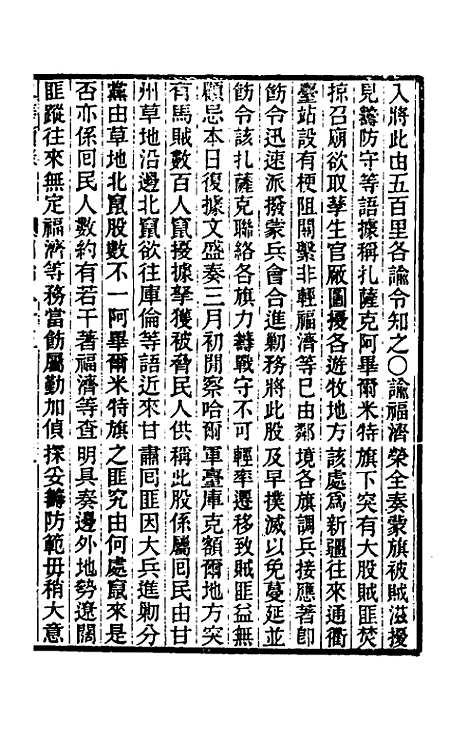 入將此由五百里各諭令知之○諭福濟榮全奏蒙旗被賊滋擾
見籌防守等語據稱扎薩克阿畢爾米特旗下突有大股賊匪焚
掠召廟欲取孳生官厰圖擾各遊牧地方該處爲新疆往來通衢
臺站設有梗阻關繫非輕福濟等已由鄰境各旗調兵接應著卽
飭令迅速派撥蒙兵會合進勦務將此股及早撲滅以免蔓延並
飭令該扎薩克聯絡各旗力籌戰守不可輕率遷移致賊匪益無
顧忌本日復據文盛奏三月初間察哈爾軍臺庫克額爾地方突
有馬賊數百人竄擾據拏獲被脅民人供稱此股係屬囘民由甘
州草地沿邊北竄欲往庫倫等語近來甘肅囘匪因大兵進勦分
黨由草地北竄股數不一阿畢爾米特旗之匪究由何處竄來是
否亦係囘民人數約有若干著福濟等查明具奏邊外地勢遼闊
匪蹤往來無定福濟等務當飭屬勤加偵探妥籌防範毋稍大意